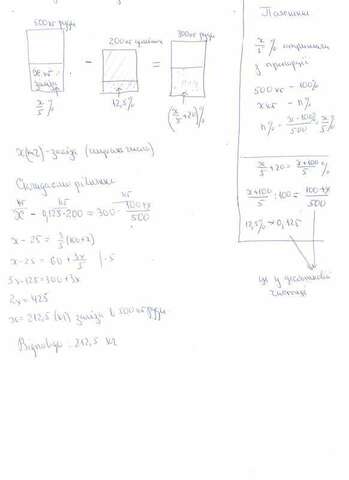 500 кг руди
200 кг
300 кг руди
x кг
заліза
-
=
x/5 %
12,5%
(x/5+20)%
x(кг) - заліза (
Складаємо рівняння
кг кг кг
x - 0,125·200 = 300 · (100+x)/500
x - 25 = 3/5 (100+x)
x - 25 = 60 + 3x/5 | ·5
5x - 125 = 300 + 3x
2x = 425
x = 212,5 (кг) заліза в 500 кг руди
Відповідь 212,5 кг
Пояснення
x/5 % отримали
з пропорції
500 кг - 100%
x кг - n%
n% = x·100/500 = x/5 %
x/5 + 20 = (x+100)/5 %
(x+100)/5 : 100 = (100+x)/500
12,5% → 0,125
це у десятковій